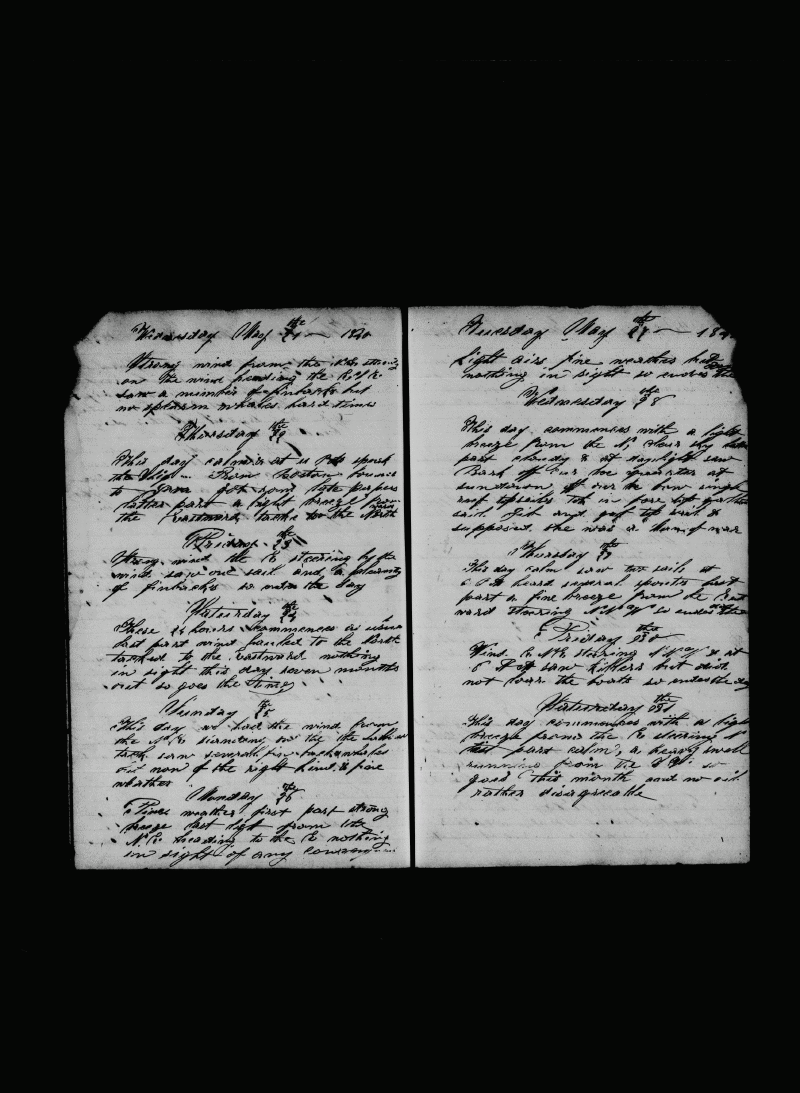 Wednesday May 21th 1840
Strong wind from the
on the wind heading the E by N
saw a number of finbacks but
no sperm whales hard times
Thursday 22
This day calm at 11 PM spoke
the Ship from Boston bound
to Java
latter part a light breeze from
the Eastward tacks to the North
Friday 23
Strong wind the E steering by the
wind saw one sail and a plenty
of finbacks so ends the day
Saturday 24
These 24 hours commences as usual
last part wind hauled to the North
tacked to the Eastward nothing
in sight this day seven months
out so goes the time
Sunday 25
This day we had the wind from
the N E standing on the
tack saw several fin back whales
but non of the right kind & fine
weather
Monday 26
Fine weather first part strong
breeze last light from the
N.E. heading to the E nothing
in sight of any
Tuesday May 27th 184
Light airs fine weather but
nothing in sight so ends the
Wednesday 28
This day commences with a light
breeze from the N clear sky latter
part cloudy & at daylight saw a
Bark off our lee quarter at
sundown off over the bow single
reef topsails
sail
supposed she was a Man of war
Thursday 29
This day calm saw two sails at
6 PM heard several spouts last
part a fine breeze from the East
ward steering N W so ends the
Friday 30
Wind E N E steering N W & at
6 PM saw killers but did
not lower the boats so ends the day
Saturday 31
This day commences with a light
breeze from the E steering N
last part calm, a heavy swell
running from the so
goes this month and no oil
rather disagreeable